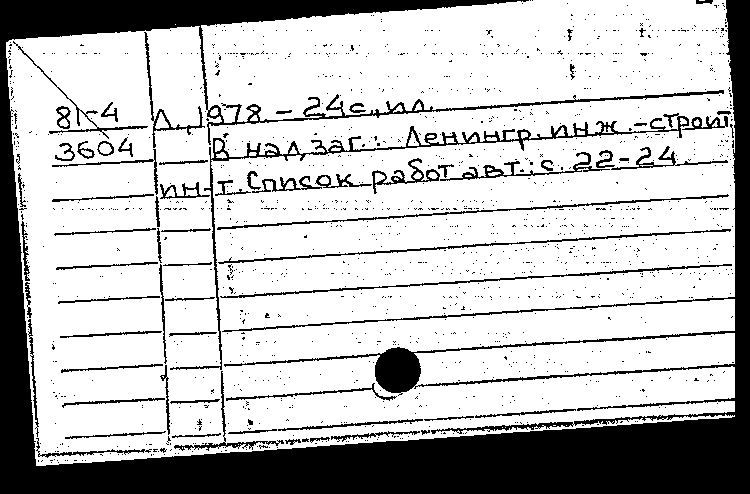 81-4 Л., 1978. - 24с., ил.
3604 В надзаг.: Ленингр. инж.-строит.
ин-т. Список работ авт.: с. 22-24.